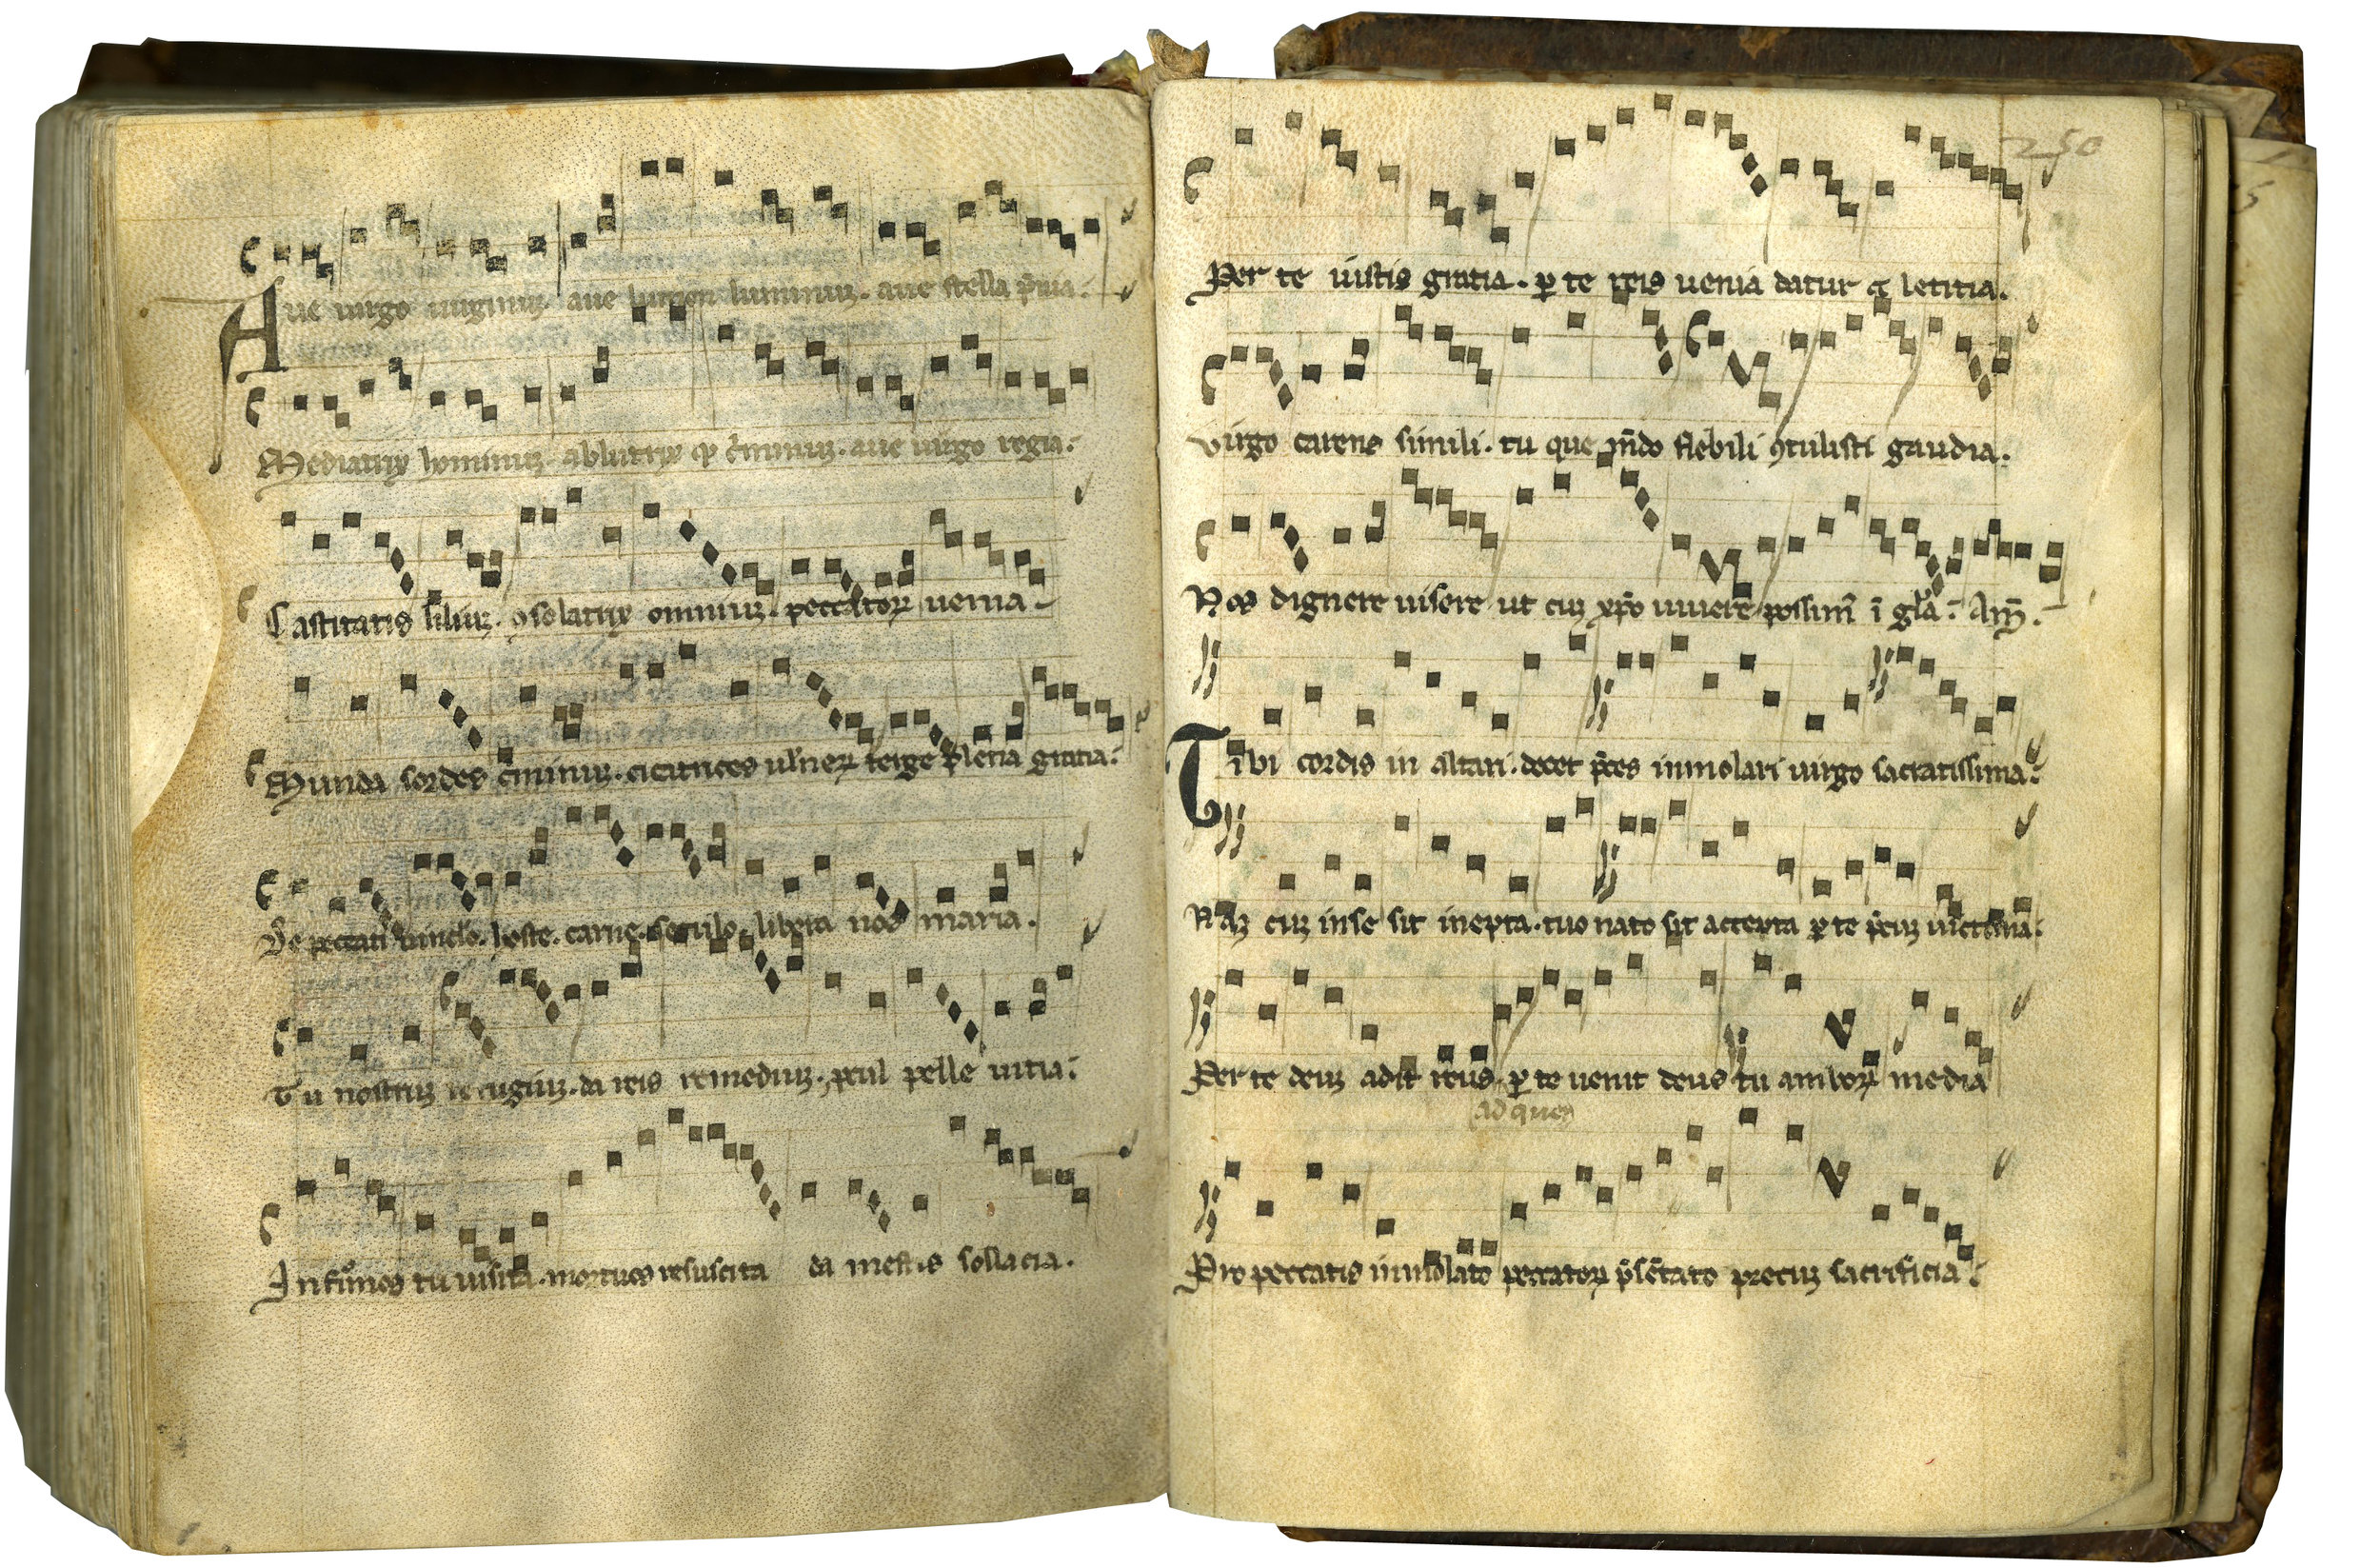 Aue uirgo uirginuz. aue lumen luminuz. aue stella p̄uia.
Mediatrix hominuz. ablutrix q̨ c̄minuz. aue uirgo regia.
Castitatis liliuz. ꝯsolatrix ominuz. peccatoꝝ uenia
Munda sordes c̄minuz. cicatrices uln̄eꝝ terge plena gratia.
De peccati uinclo. hoste. carne. seculo. libera nos maria.
Tu nostruz refugiuz. da reis remediuz. ꝓcul pelle uitia.
Infirmos tu uisita. mortuos resuscita da mestis sollacia.
250
Per te iustis gratia. ꝑ te reis uenia datur ⁊ letitia.
Virgo carens simili. tu que mn̄do flebili ꝯtulisti gaudia.
Nos dignere uisere ut cuz xp̄o uiuere possim̄ ī gl̄a. Am̄.
Tibi cordis in altari. decet p̄ces inmolari uirgo sacratissima.
Naz cuz inse sit inepta. tuo nato sit accepta ꝑ te p̄cuz uictima.
Per te deuz adit reus. ꝑ te uenit deus tu amboꝝ media
ad quem
Pro peccatis inmolato peccatoꝝ p̄sētato precuz sacrificia.